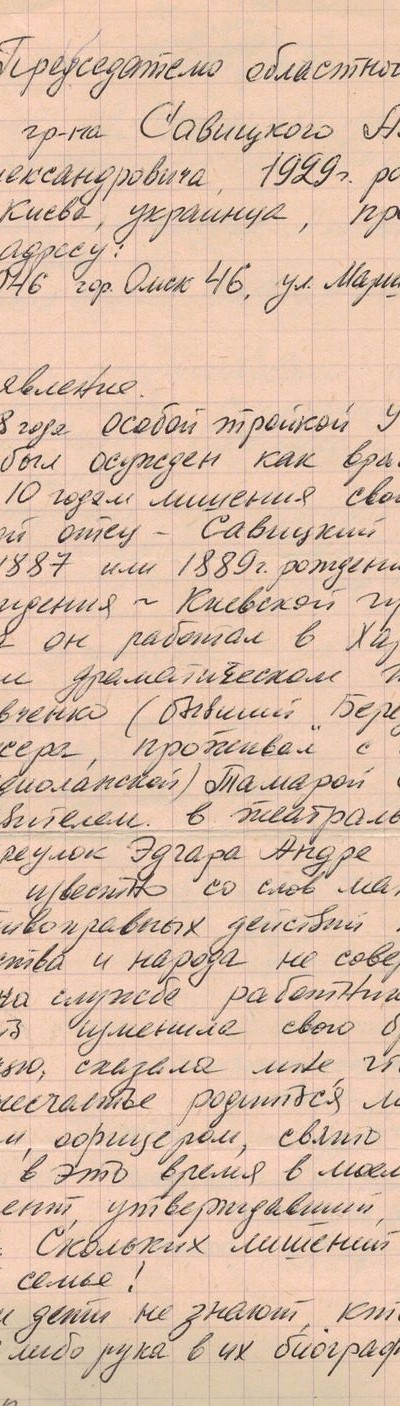 Председателю областног
гр-на Савицкого А
лександровича, 1929г. ро
Киева, украинца, про
адресу:
046 гор. Омск 46, ул. Марш
явление.
8 годе особой тройкой У
был осужден как вра
10 годам лишения своб
ой отец - Савицкий
1887 или 1889г. рождени
ждения ~ Киевской гу
он работал в Хар
м драматическом т
вченко (бывший "Бере
сера, проживал с
диоланской) Тамарой
бителем. в театраль
реулок Эдгара Андре
известно со слов мат
тивоправных действий
ства и народа не совер
на службе работни
изменила свою
сказала мне чт
несчастье родиться
м, офицером, свято
в это время в моем
ент, утверждавший,
. Скольких лишений
семье!
и дети не знают, кт
либо рука в их биограф